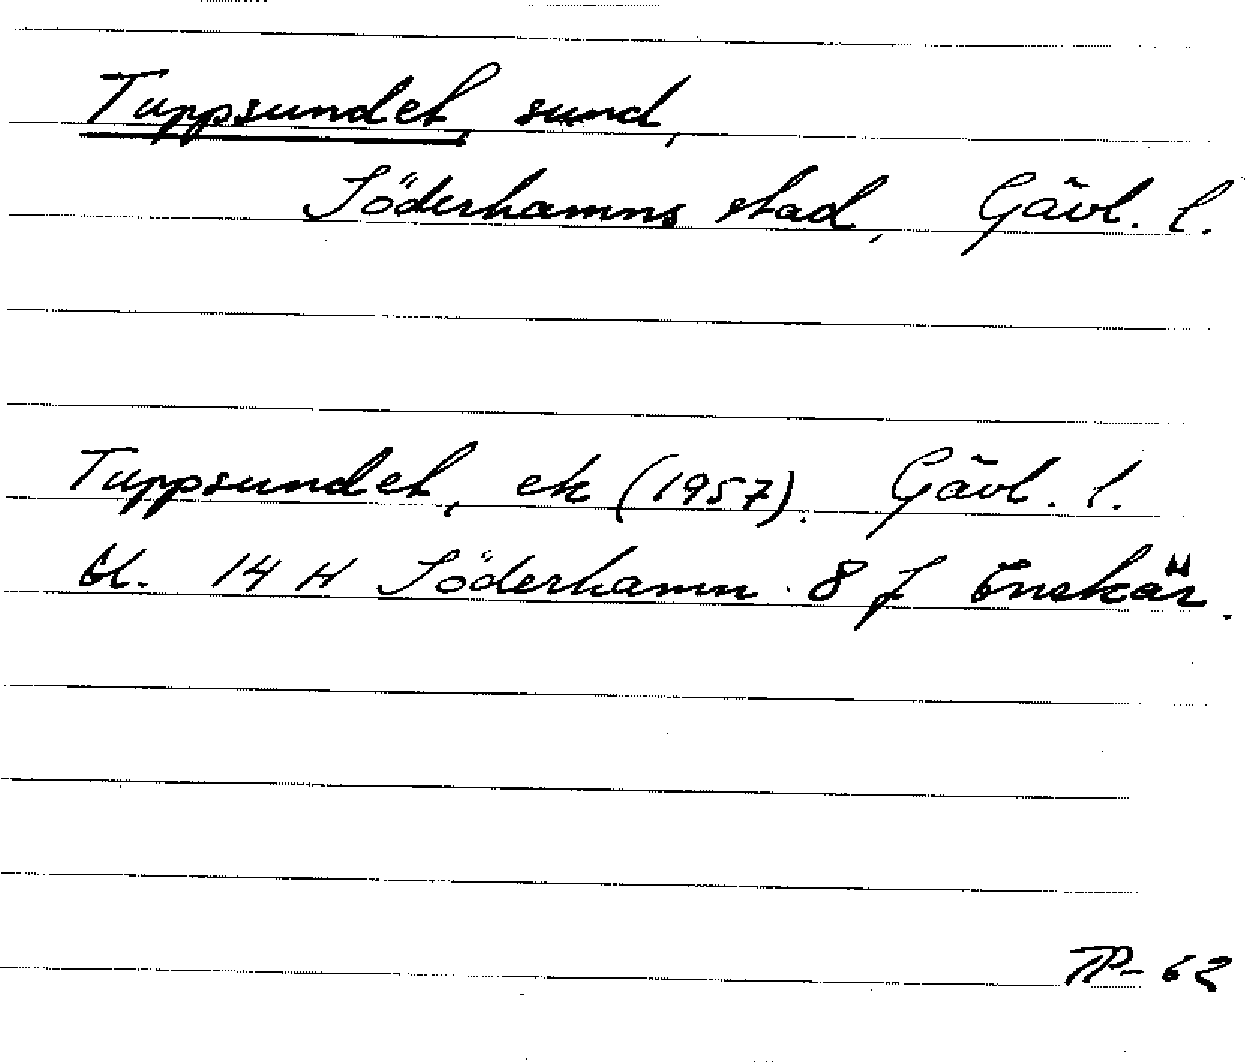 Tuppsundet, sund,
Söderhamns stad, Gävl. l.
Tuppsundet, ek (1957). Gävl. l.
bl. 14 H Söderhamn 8 f Enskär.
TP-62